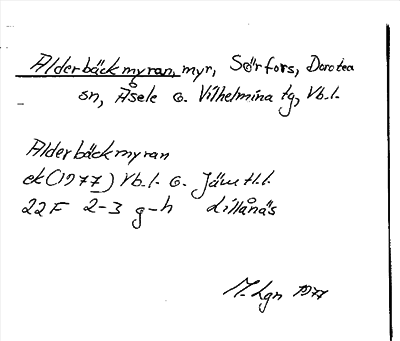 Alderbäckmyran, myr, Sörfors, Dorotea
sn, Åsele o. Vilhelmina tg, Vb.l.
Alderbäckmyran
ek (1977) Vb.l. o. Jämtl.l.
22F 2-3 g-h Lillånäs
M. Lgn 1977